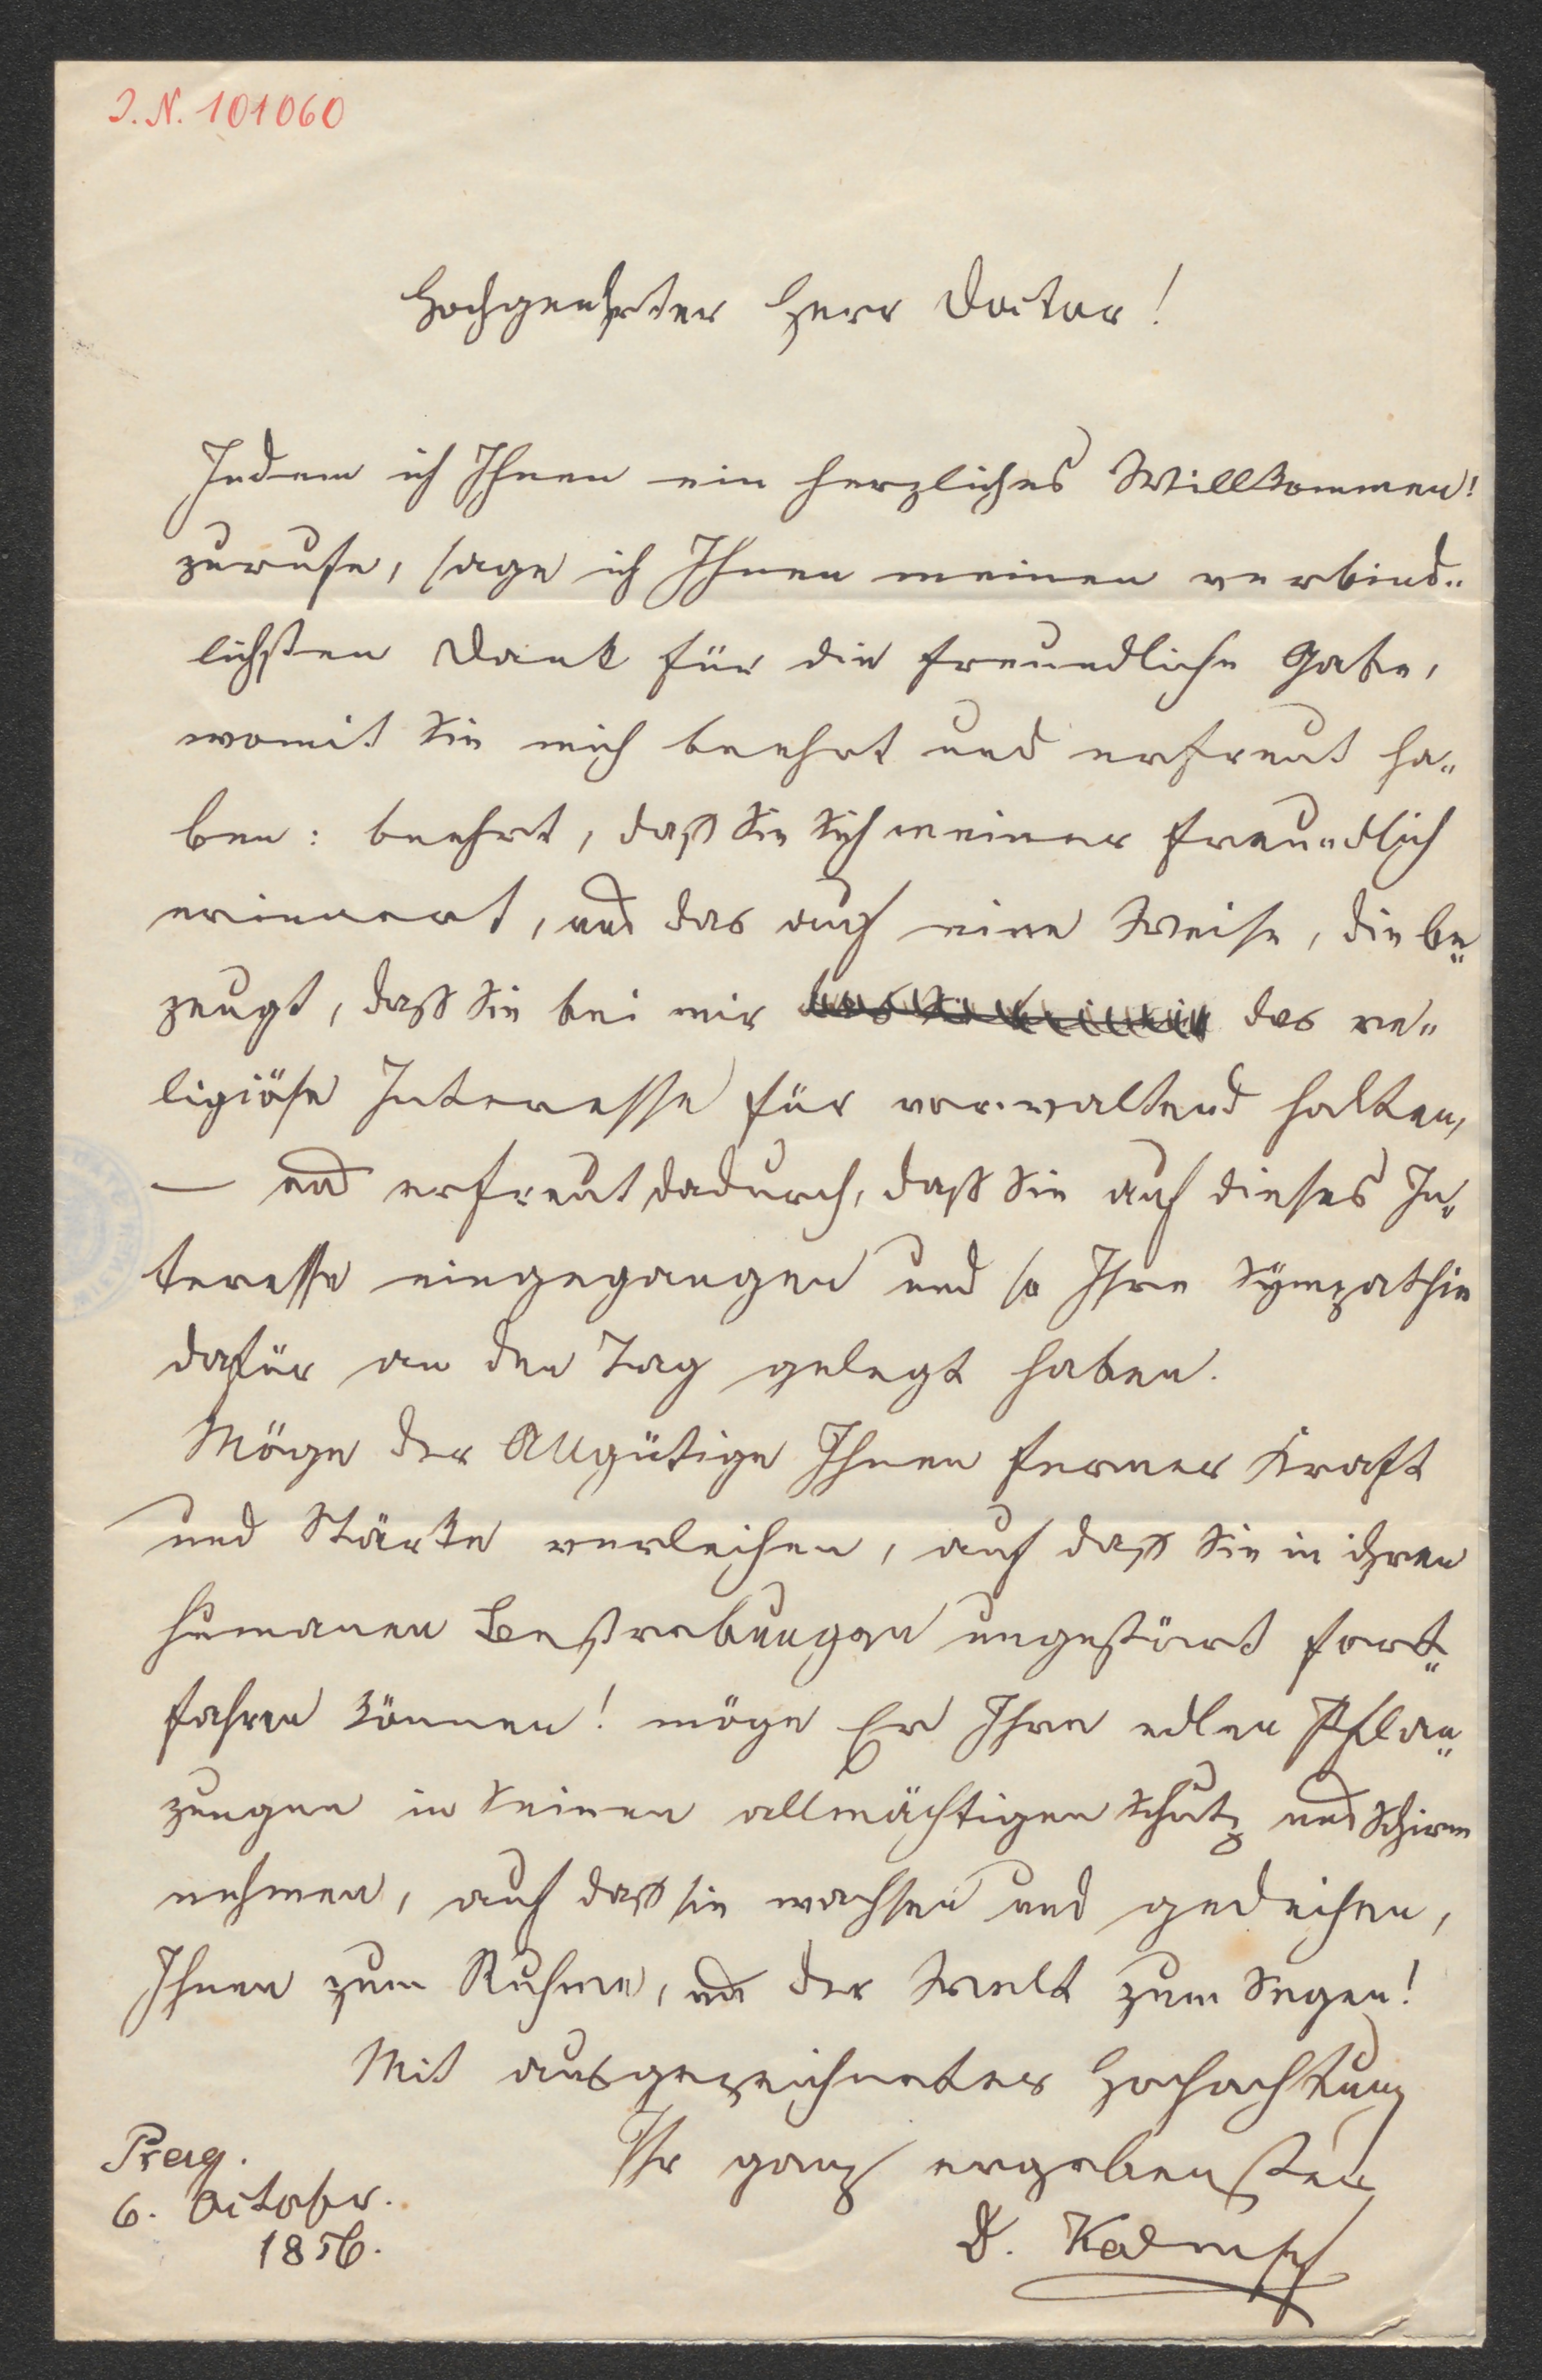 I. N. 101060
Hochgeehrter Herr Doctor!
Indem ich Ihnen ein herzliches Willkommen!
zurufe, sage ich Ihnen meinen verbind„
lichsten Dank für die freundliche Gabe,
womit Sie mich beehrt und erfreut ha„
ben: beehrt, daß Sie Sich meiner freundlich
erinnert, und das auf eine Weise, die be„
zeugt, daß Sie bei mir das re„
ligiöse Interesse für vorwaltend halten,
— und erfreut dadurch, daß Sie auf dieses In„
teresse eingegangen und so Ihre Sympathie
dafür an den Tag gelegt haben.
Möge der Allgütige Ihnen ferner Kraft
und Stärke verleihen, auf daß Sie in ihren
humanen Bestrebungen ungestört fort„
fahren können! möge Er Ihre edlen Pflan„
zungen in Seinen allmächtigen Schutz und Schirm
nehmen, auf daß sie wachsen und gedeihen,
Ihnen zum Ruhme, und der Welt zum Segen!
Mit ausgezeichneter Hochachtung
Ihr ganz ergebenster
D. Kaempf
Prag.
6. October.
1856.